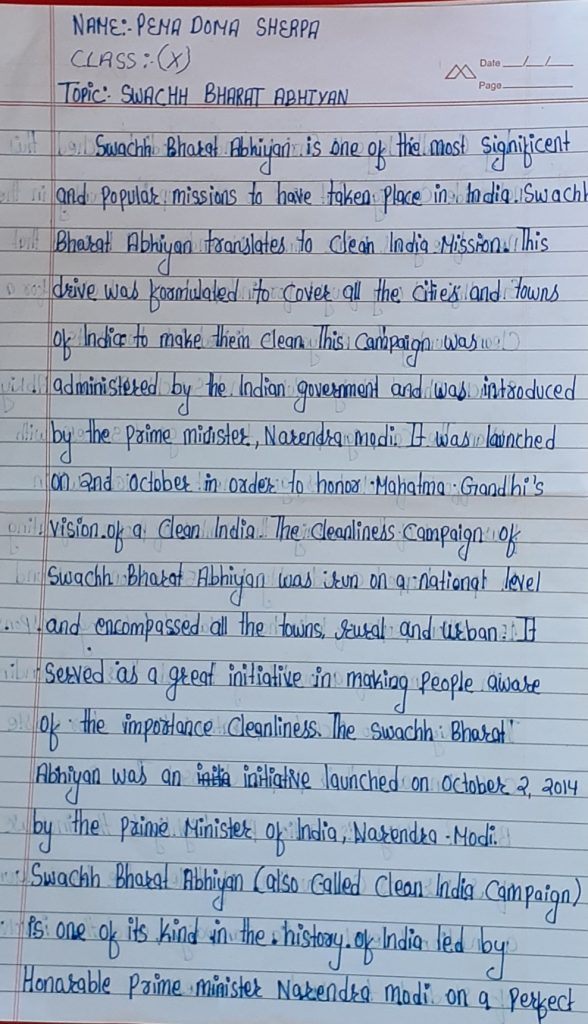 NAME:- PEMA DOMA SHERPA
CLASS:- (X)
Date __/__/__
Page
TOPIC:- SWACHH BHARAT ABHIYAN
Swachh Bharat Abhiyan is one of the most significent
and popular missions to have taken place in India. Swachh
Bharat Abhiyan translates to Clean India Mission. This
drive was formulated to cover all the cities and towns
of India to make them clean. This Campaign was
administered by the Indian government and was introduced
by the prime minister, Narendra modi. It was launched
on 2nd october in order to honor Mahatma Grandhi's
vision of a Clean India. The Cleanliness Campaign of
Swachh Bharat Abhiyan was run on a national level
and encompassed all the towns, rural and urban. It
served as a great initiative in making people aware
of the importance Cleanliness. The Swachh Bharat
Abhiyan was an initia initiative launched on October 2, 2014
by the Prime Minister of India, Narendra Modi.
Swachh Bharat Abhiyan (also Called Clean India Campaign)
is one of its kind in the history of India led by
Honarable Prime minister Narendra modi on a perfect